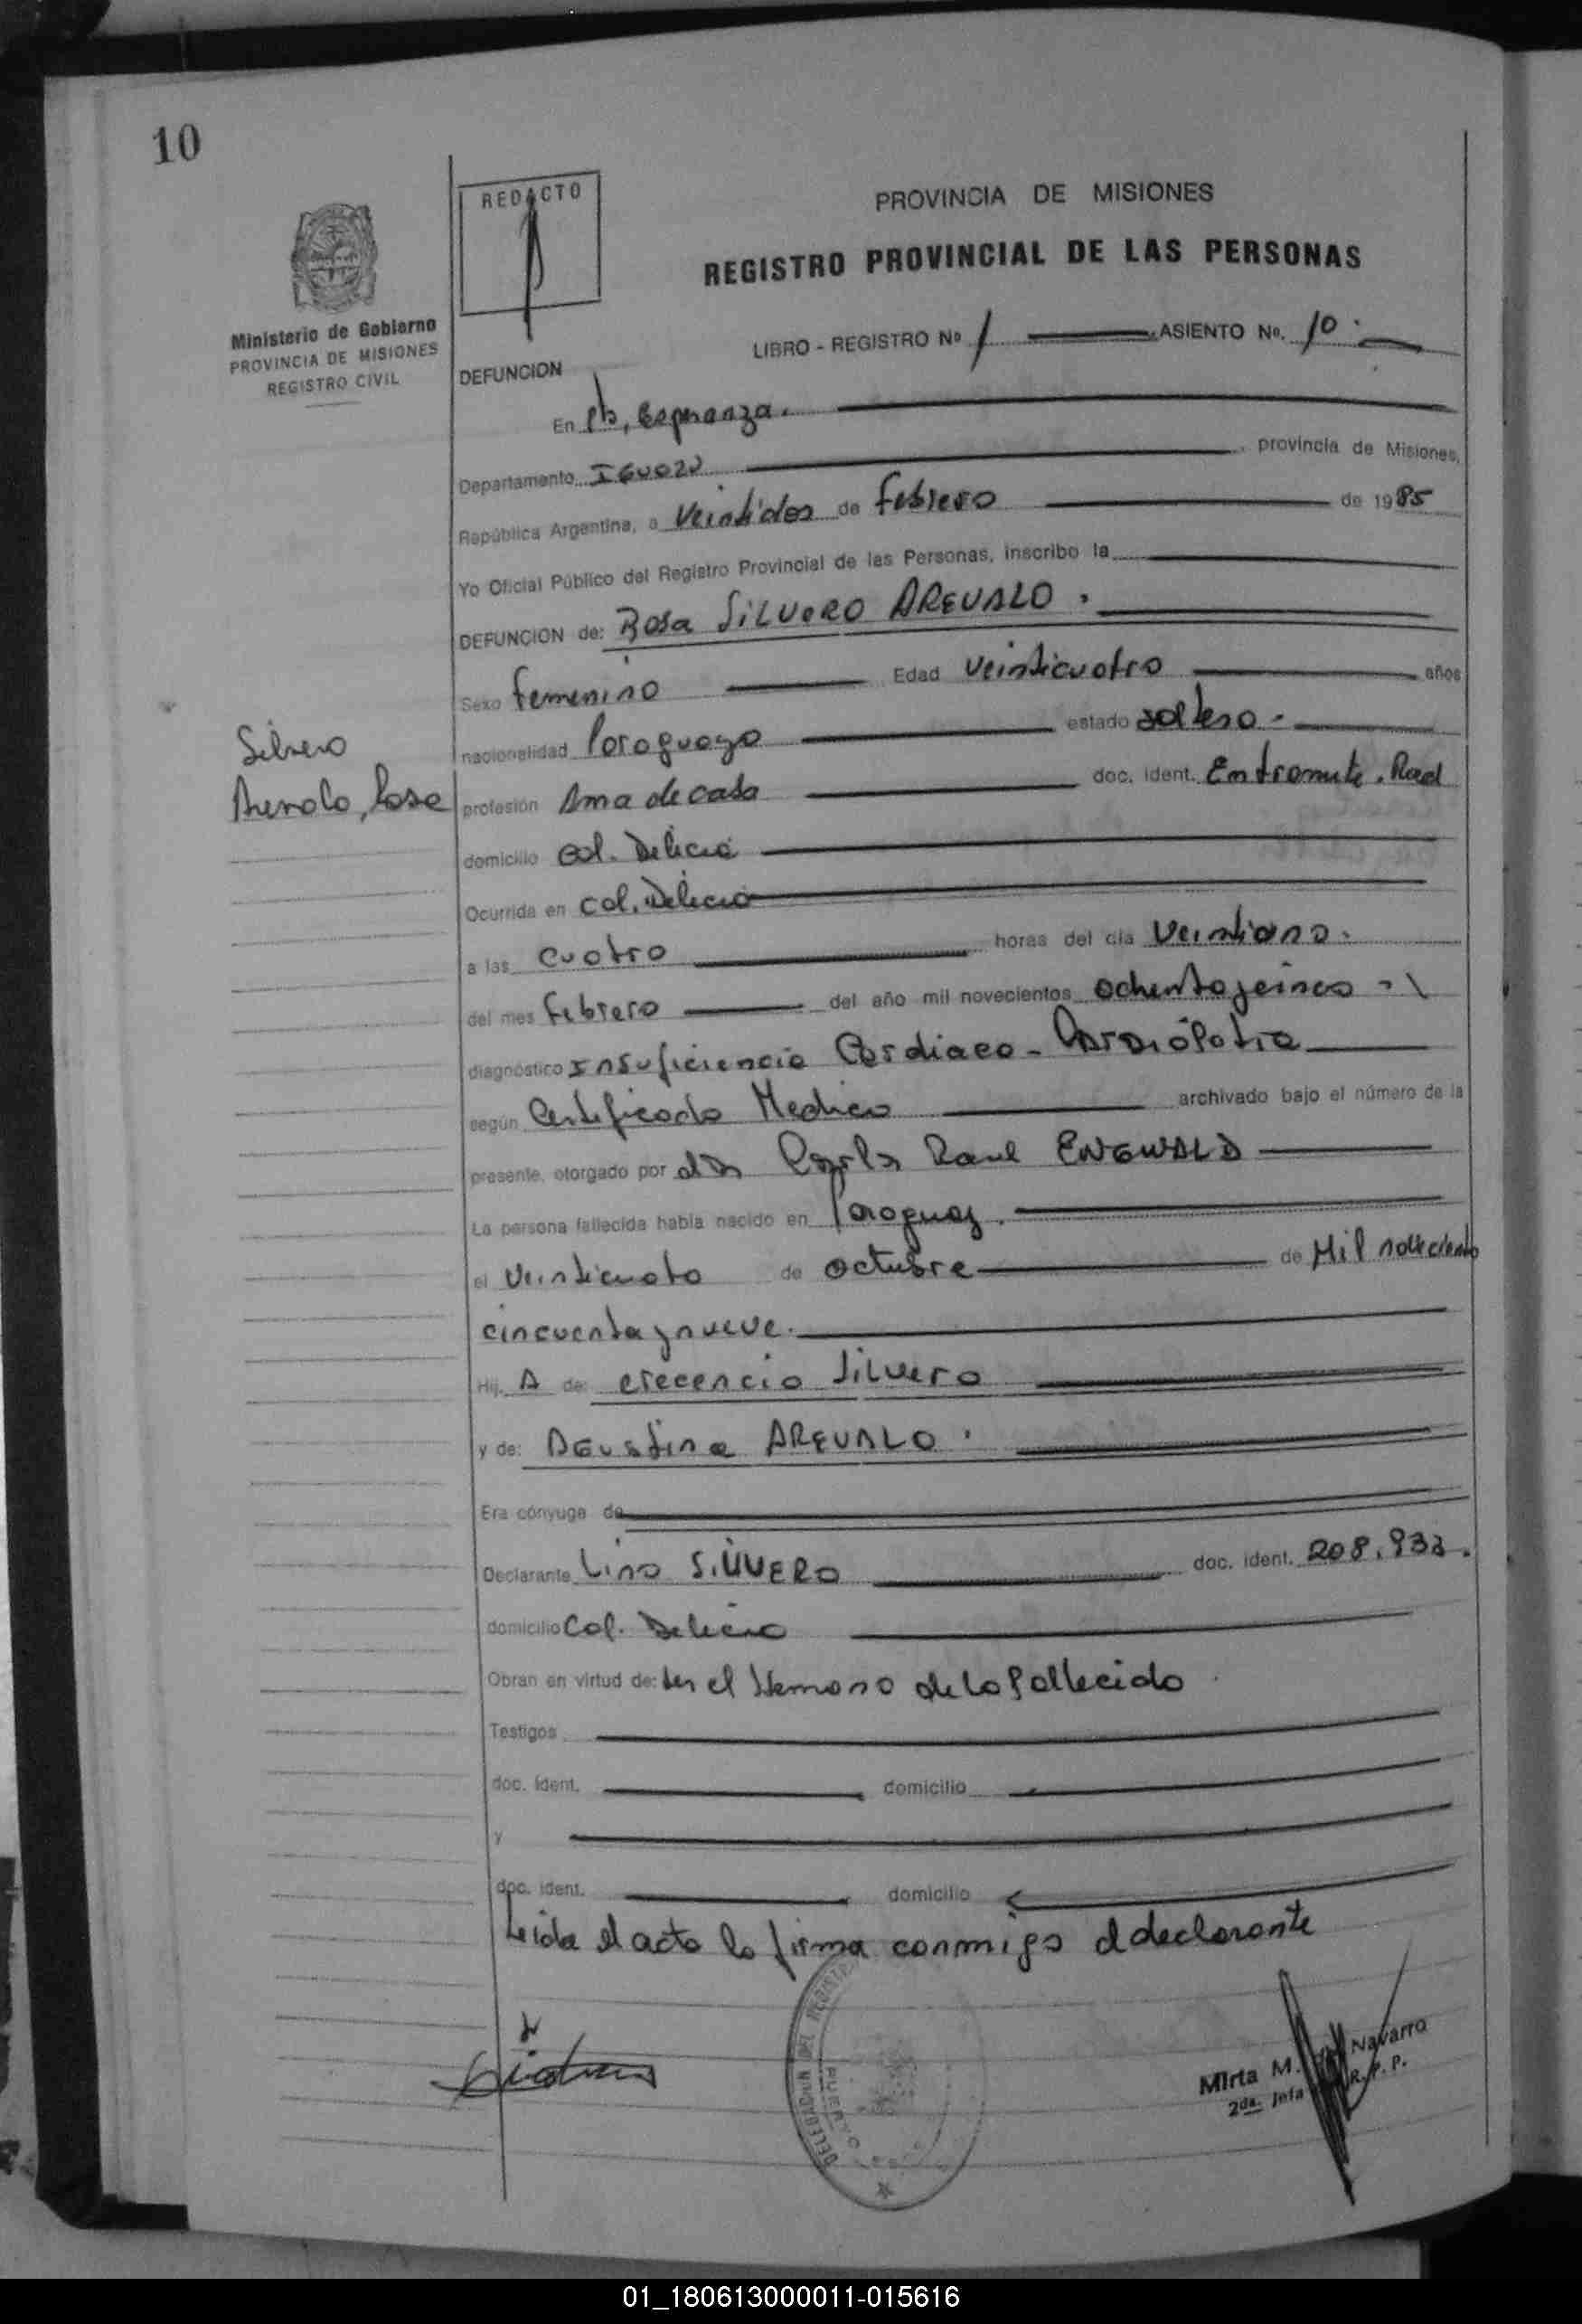 10
REDACTO
PROVINCIA DE MISIONES
REGISTRO PROVINCIAL DE LAS PERSONAS
Ministerio de Gobierno
PROVINCIA DE MISIONES
REGISTRO CIVIL
LIBRO - REGISTRO Nº 1 ASIENTO Nº. 10.
DEFUNCION
En Pto, Esperanza.
Departamento IGUAZU, provincia de Misiones,
República Argentina, a Veintidos de febrero de 1985
Yo Oficial Público del Registro Provincial de las Personas, inscribo la
DEFUNCION de: Rosa SILVERO AREVALO.
Sexo femenino Edad veinticuatro años
nacionalidad Paraguaya estado soltera.-
Silvero
Arevalo, Rosa
profesión Ama de casa doc. ident. En tramite. Rad
domicilio Col. Delicia
Ocurrida en Col. Delicia
a las cuatro horas del día Veintiuno.
del mes febrero del año mil novecientos ochenta y cinco
diagnóstico Insuficiencia Cardiaca - Cardiópatia
según Certificado Medico archivado bajo el número de la
presente, otorgado por Raul ENGWALD
La persona fallecida había nacido en Paraguay.
el Veinticuato de octubre de Mil noveciento
cincuenta y nueve.
Hij. A de: crecencio Silvero
y de: AGustina AREVALO.
Era cónyuge de
Declarante Lino SILVERO doc. ident. 208.933.
domicilio Col. Delicia
Obran en virtud de: ser el Hermano de la fallecida
Testigos
doc. ident. domicilio
y
doc. ident. domicilio
Leida el acta la firma conmigo el declarante
DELEGACION DEL REGISTR
PUERTO
Mirta M. Navarro
2da. Jefa R. P. P.
01_180613000011-015616